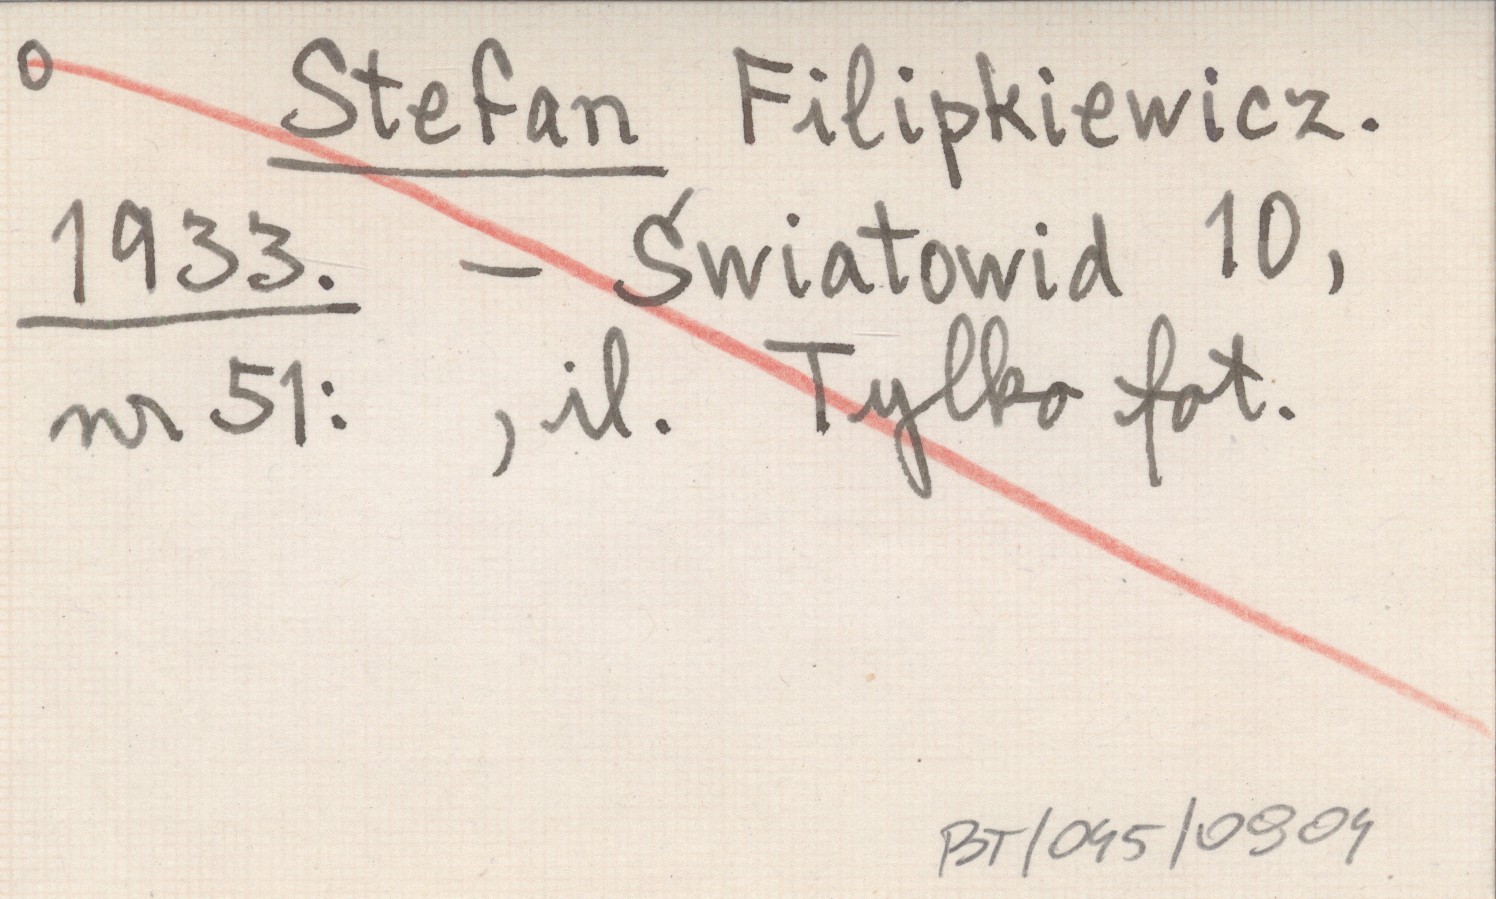 o Stefan Filipkiewicz.
1933. – Światowid 10,
nr 51: , il. Tylko fot.
BT/045/0904